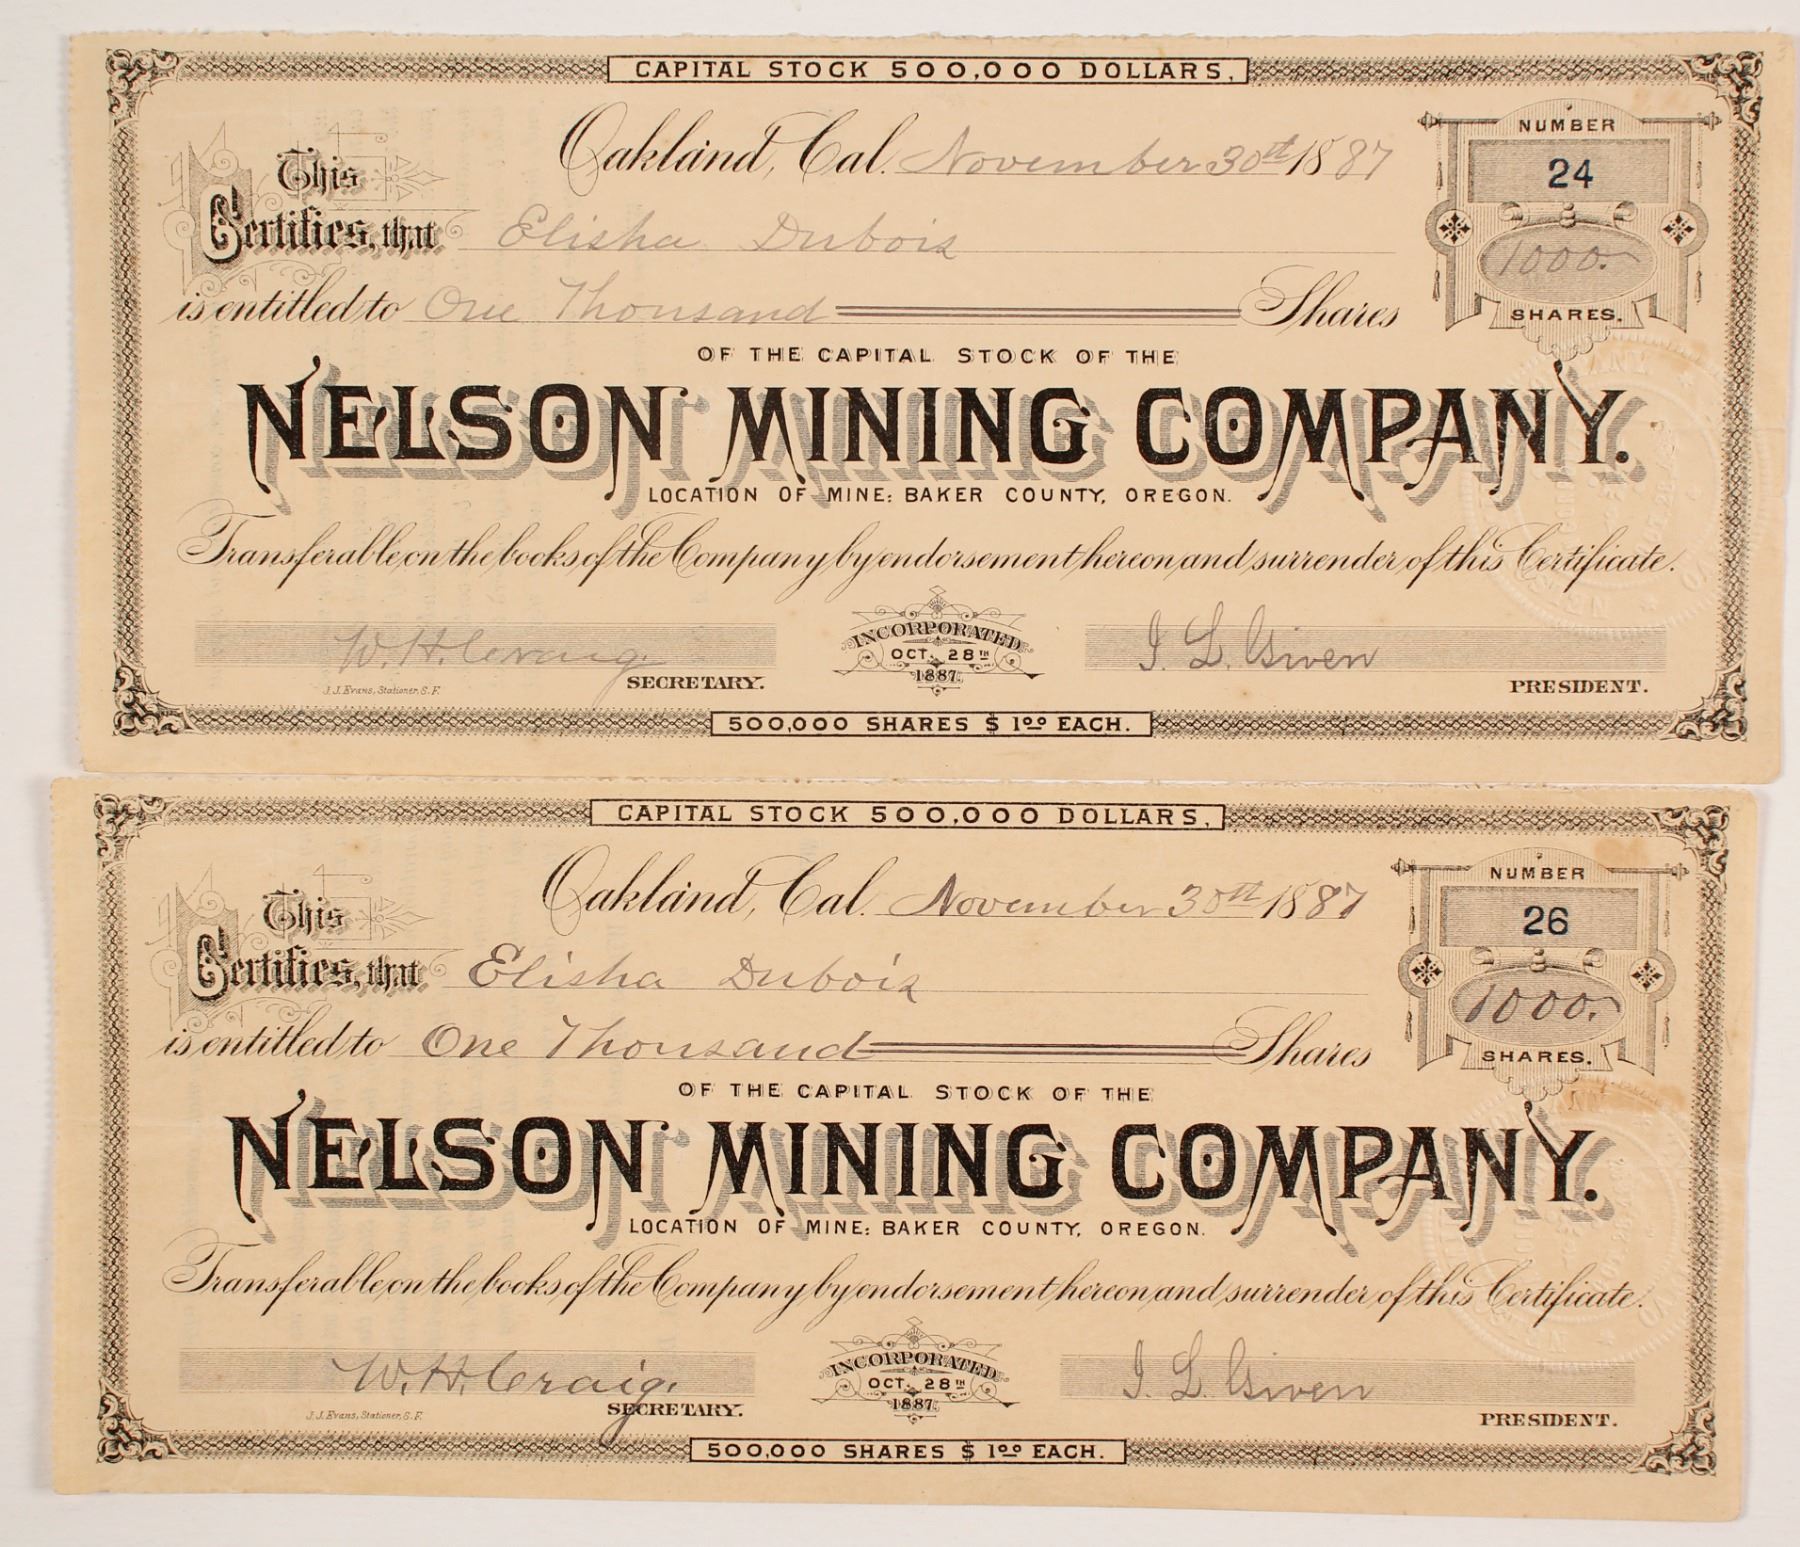 CAPITAL STOCK 500,000 DOLLARS.
Oakland, Cal. November 30th 1887
NUMBER
24
This
Certifies, that Elisha Dubois
1000.
is entitled to One Thousand Shares
SHARES.
OF THE CAPITAL STOCK OF THE
NELSON MINING COMPANY.
LOCATION OF MINE: BAKER COUNTY, OREGON.
Transferable on the books of the Company by endorsement hereon and surrender of this Certificate.
W. H. Craig
SECRETARY.
J.J. Evans, Stationer, S.F.
INCORPORATED
OCT. 28TH
1887.
I. L. Given
PRESIDENT.
500,000 SHARES $1.00 EACH.
CAPITAL STOCK 500,000 DOLLARS.
Oakland, Cal. November 30th 1887
NUMBER
26
This
Certifies, that Elisha Dubois
1000.
is entitled to One Thousand Shares
SHARES.
OF THE CAPITAL STOCK OF THE
NELSON MINING COMPANY.
LOCATION OF MINE: BAKER COUNTY, OREGON.
Transferable on the books of the Company by endorsement hereon and surrender of this Certificate.
W. H. Craig.
SECRETARY.
J.J. Evans, Stationer, S.F.
INCORPORATED
OCT. 28TH
1887.
I. L. Given
PRESIDENT.
500,000 SHARES $1.00 EACH.